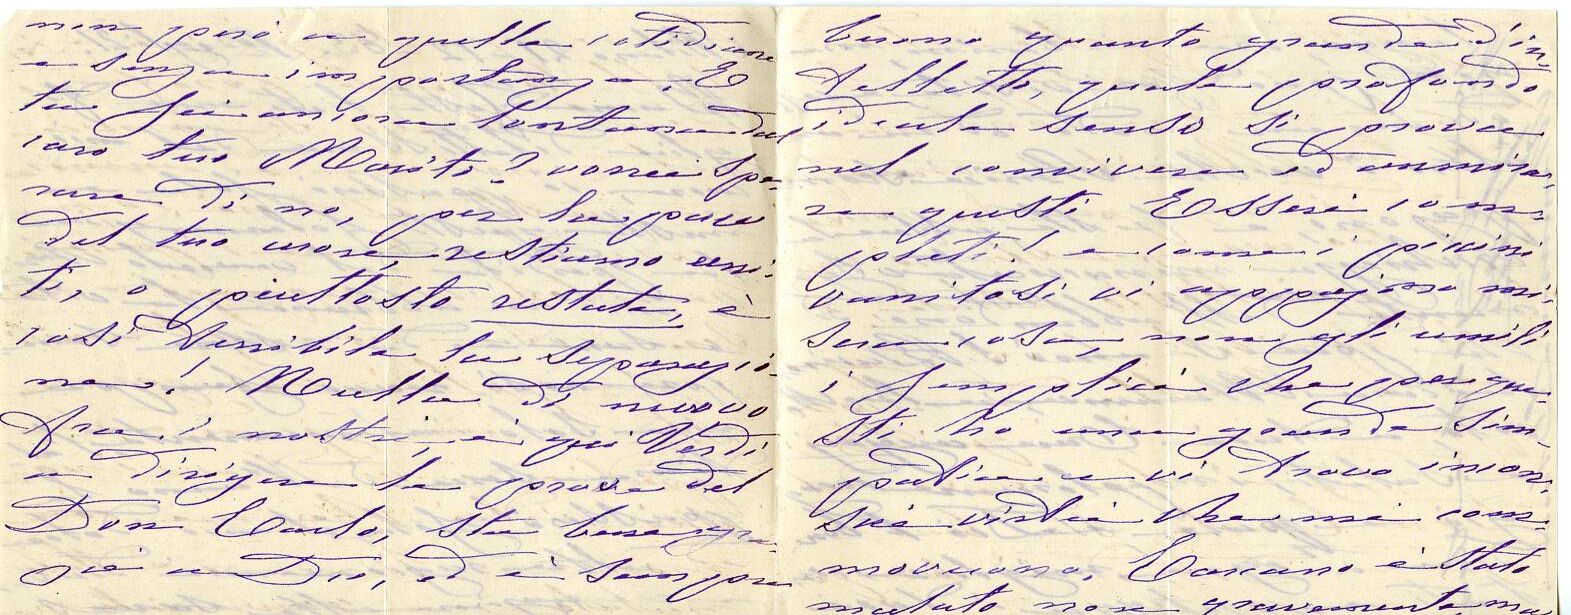 non però a quelle cotidiane
e senza importanza. E
tu sei ancora lontana dal
caro tuo Marito? vorrei spe-
rare di no, per la pace
del tuo cuore, restiamo uni-
ti, o piuttosto restate, è
così terribile la separazio-
ne! Nulla di nuovo
fra i nostri, è qui Verdi
a dirigere le prove del
Don Carlo, sta bene gra-
zie a Dio, ed è sempre
buono quanto grande d'in-
telletto, quale profondo
ideale senso si prova
nel convivere ed ammira-
re questi Esseri com-
pleti! e come i piccini
vanitosi vi appajono mi-
sera cosa, non gli umili
i semplici che per que-
sti ho una grande sim-
patia e vi trovo incon-
scie virtù che mi com-
movono. è stato
malato non gravemente, ma